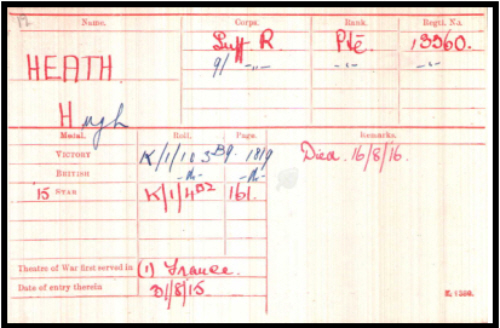 Name. Corps. Rank. Regtl. No.
HEATH Suff R. Pte. 13360.
9/ -"- -"- -"-
Hugh
Medal. Roll. Page. Remarks.
VICTORY K/1/103B9. 1819 Died. 16/8/16.
BRITISH -do- -do-
'15 STAR K/1/4B2 161.
Theatre of War first served in (1) France.
Date of entry therein 31/8/15.
K. 1380.